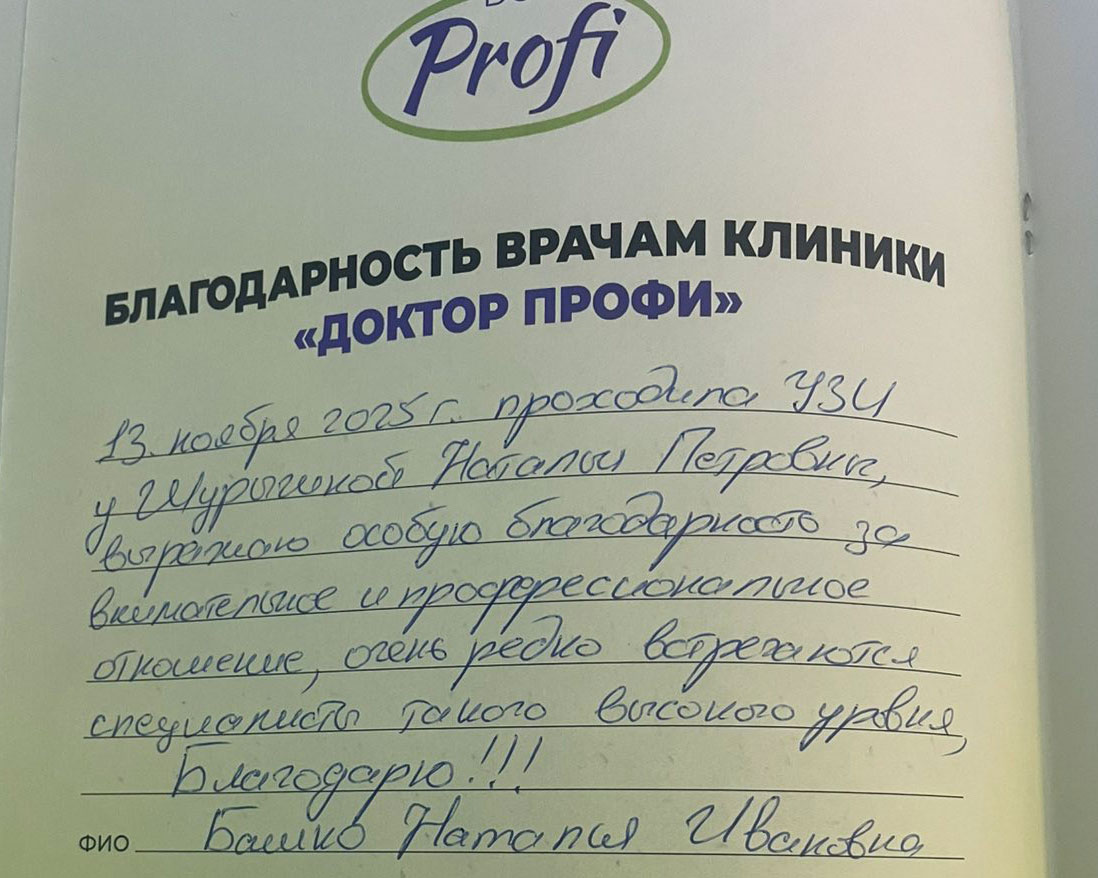 Profi
БЛАГОДАРНОСТЬ ВРАЧАМ КЛИНИКИ
«ДОКТОР ПРОФИ»
13 ноября 2025 г. проходила УЗИ
у Шурыгиной Натальи Петровны,
выражаю особую благодарность за
внимательное и профессиональное
отношение, очень редко встречаются
специалисты такого высокого уровня,
Благодарю!!!
ФИО Башко Наталья Ивановна